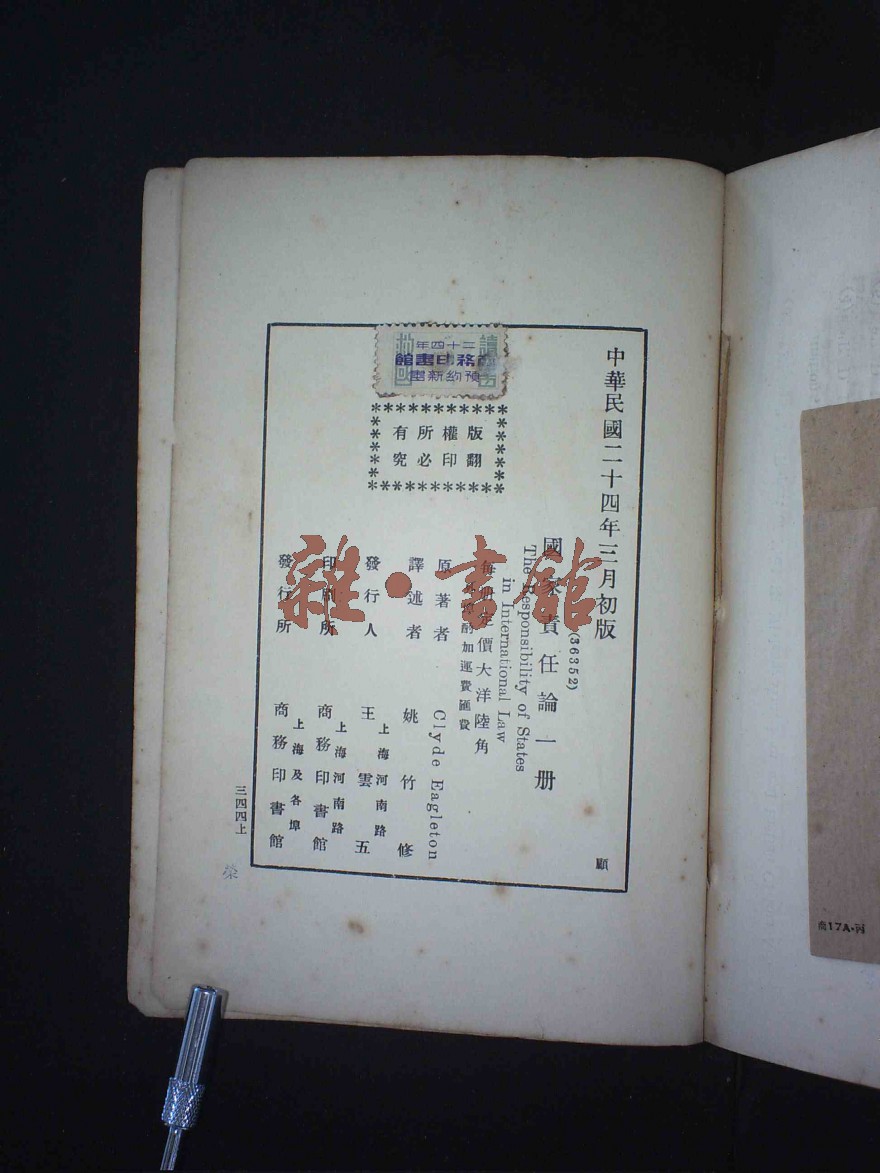 中華民國二十四年三月初版
(36352)
國家責任論一册
The Responsibility of States
in International Law
每册定價大洋陸角
外埠酌加運費匯費
原著者 Clyde Eagleton
譯述者 姚竹修
發行人 王雲五
上海河南路
印刷所 商務印書館
上海河南路
發行所 商務印書館
上海及各埠
版權所有
翻印必究
二十四年
商務印書館
預約新書
三四四上
顧
雜·書館
商17A·丙